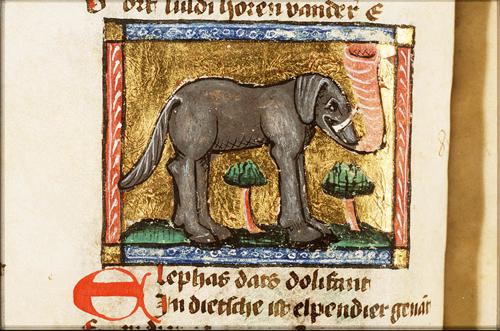 V ort suldi horen vander E
Elephas dats dolifant
In dietsche ist elpendier genāt